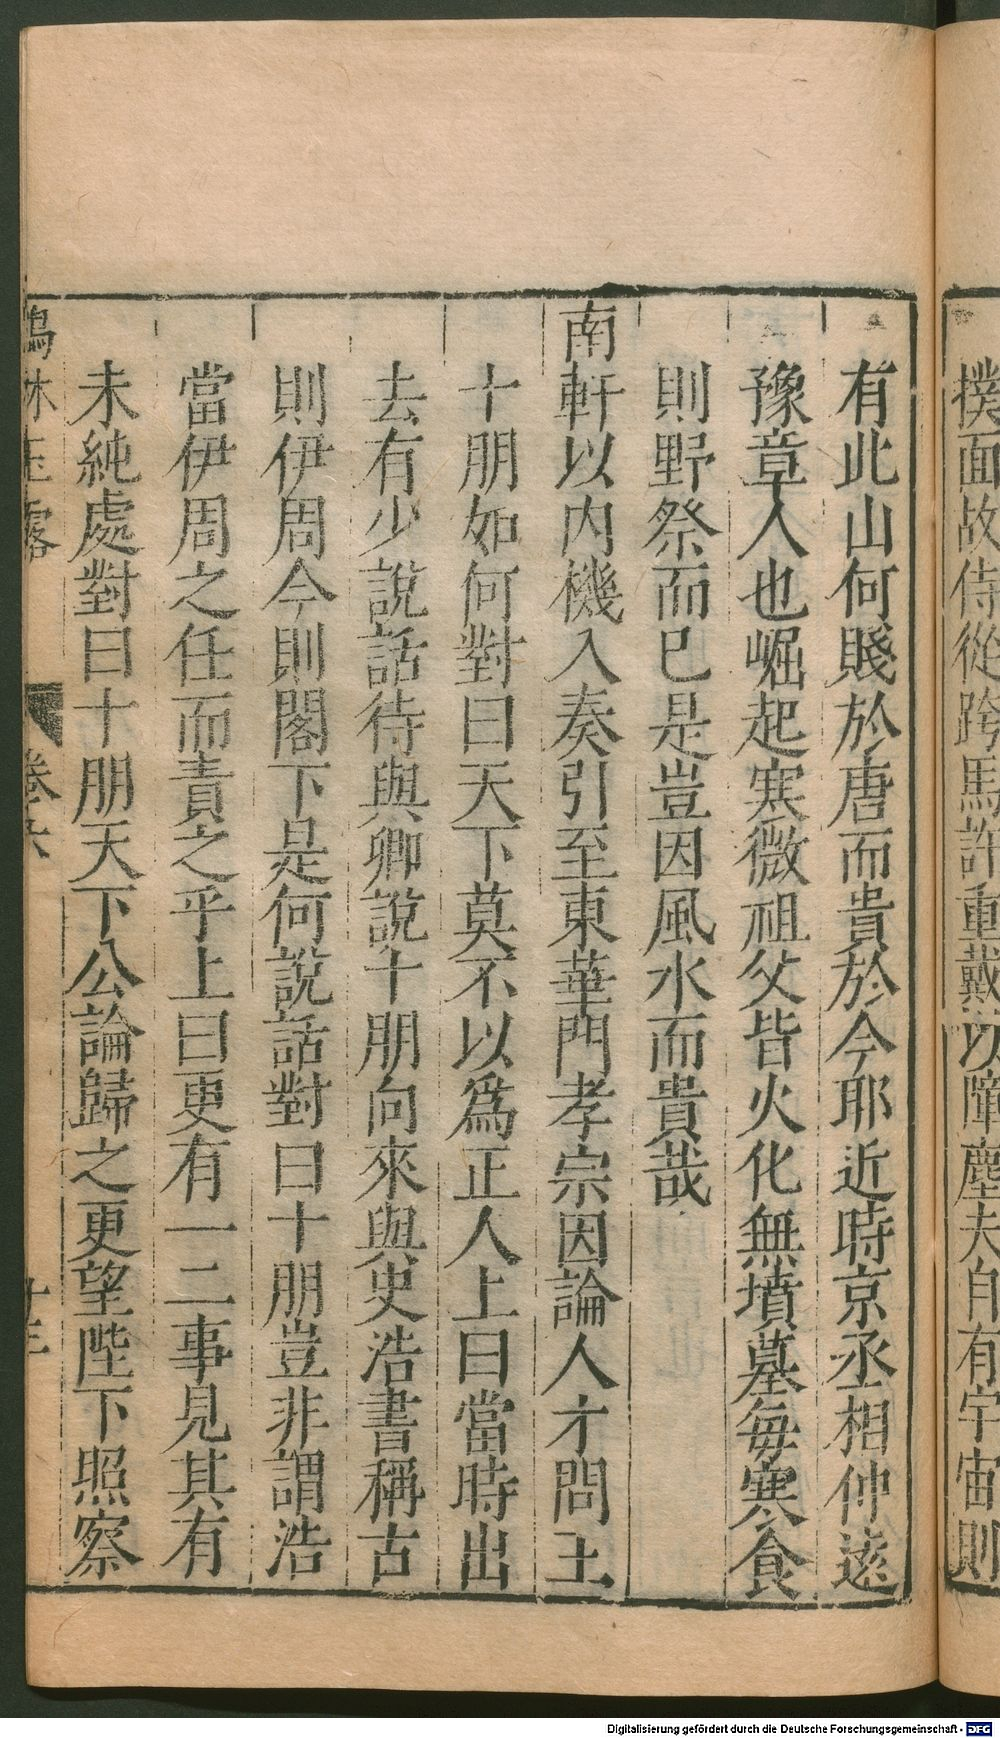 撲面故侍從跨馬許重戴以障塵夫自有宇宙則
有此山何賤於唐而貴於今耶近時京丞相仲遠
豫章人也崛起寒微祖父皆火化無墳墓每寒食
則野祭而已是豈因風水而貴哉
南軒以內機入奏引至東華門孝宗因論人才問王
十朋如何對曰天下莫不以爲正人上曰當時出
去有少說話待與卿說十朋向來與史浩書稱古
則伊周今則閣下是何說話對曰十朋豈非謂浩
當伊周之任而責之乎上曰更有一二事見其有
未純處對曰十朋天下公論歸之更望陛下照察
鶴林玉露 卷六 十三
Digitalisierung gefördert durch die Deutsche Forschungsgemeinschaft - DFG